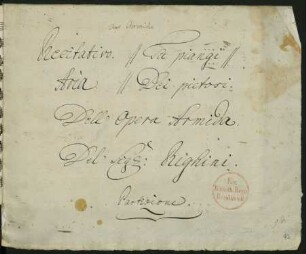 Recitativo. // Tu piangi //
Aria // Dei pietosi.
Dell' Opera Armida
Del Sig: Righini.
Partizione.